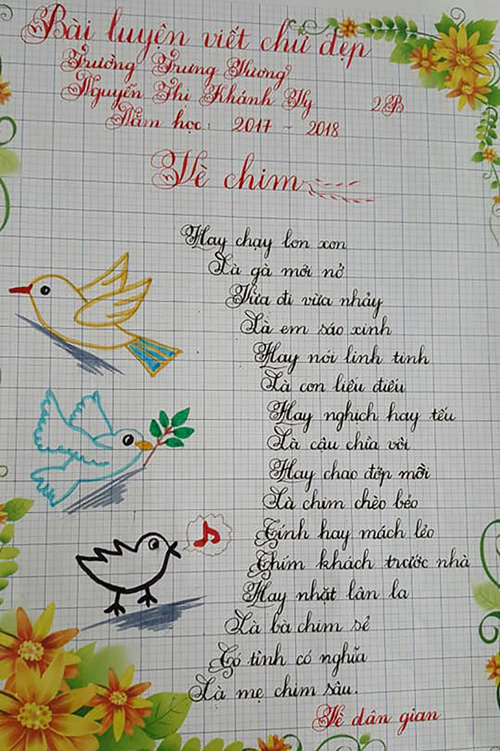 Bài luyện viết chữ đẹp
Trường Trưng Vương
Nguyễn Thị Khánh Vy 2B
Năm học: 2017 - 2018
Vè chim
Hay chạy lon xon
Là gà mới nở
Vừa đi vừa nhảy
Là em sáo xinh
Hay nói linh tinh
Là con liếu điếu
Hay nghịch hay tếu
Là cậu chìa vôi
Hay chao đớp mồi
Là chim chèo bẻo
Tính hay mách lẻo
Thím khách trước nhà
Hay nhặt lân la
Là bà chim sẻ
Có tình có nghĩa
Là mẹ chim sâu.
Vè dân gian